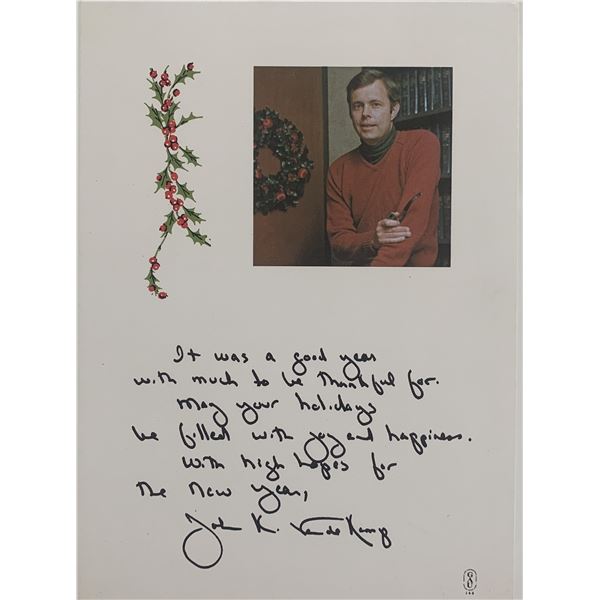 It was a good year
with much to be thankful for.
May your holidays
be filled with joy and happiness.
With high hopes for
the New Year,
John K. Van de Kamp